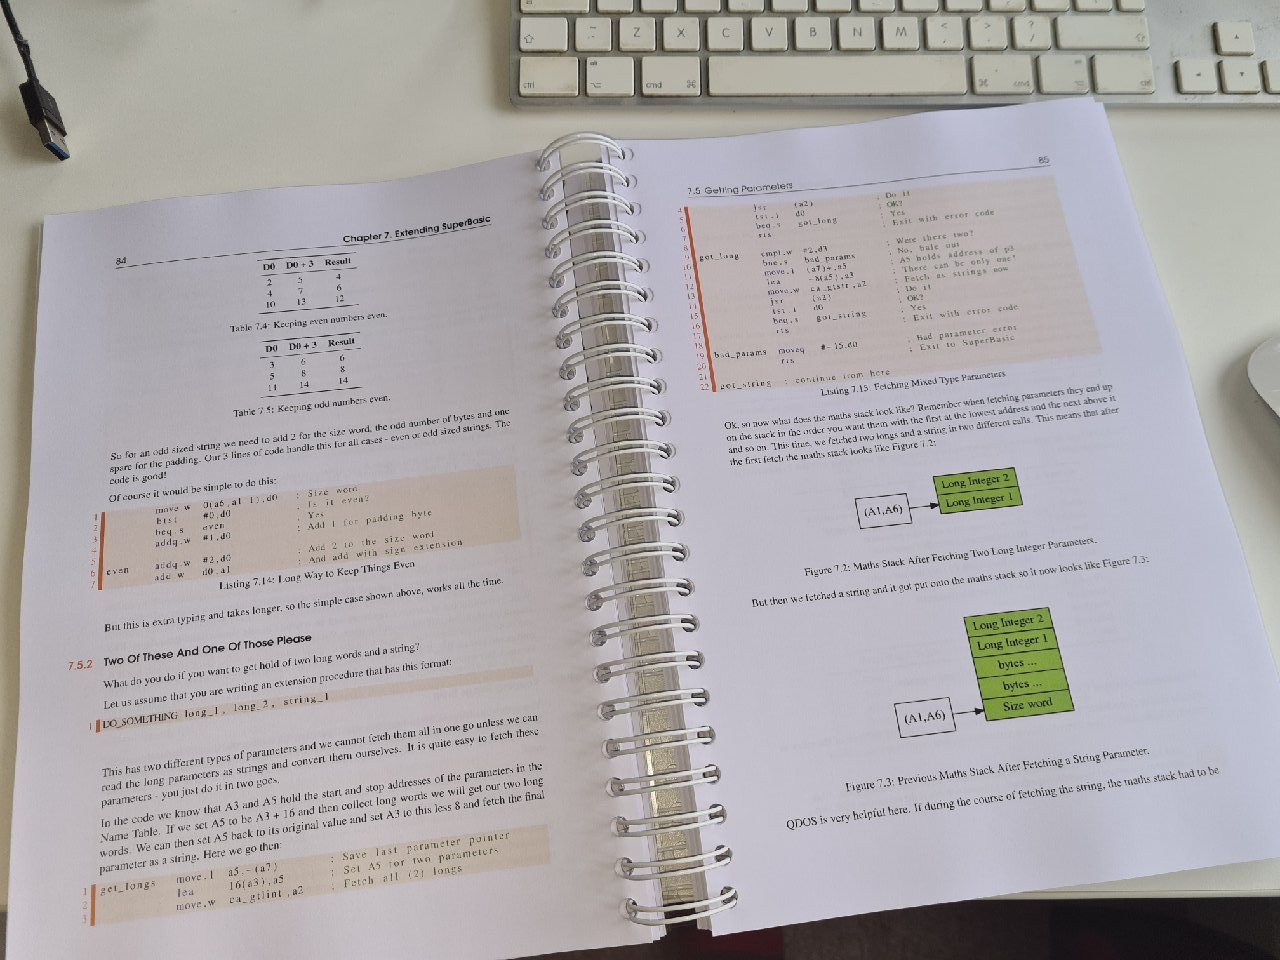 Z
X
C
V
B
N
M
ctrl
alt
cmd
cmd
ctrl
84
Chapter 7. Extending SuperBasic
D0 D0 + 3 Result
2 5 4
4 7 6
10 13 12
Table 7.4: Keeping even numbers even.
D0 D0 + 3 Result
3 6 6
5 8 8
11 14 14
Table 7.5: Keeping odd numbers even.
So for an odd sized string we need to add 2 for the size word, the odd number of bytes and one
spare for the padding. Our 3 lines of code handle this for all cases - even or odd sized strings. The
code is good!
Of course it would be simple to do this:
1 move.w 0(a6,a1.l),d0 ; Size word
2 btst #0,d0 ; Is it even?
3 beq.s even ; Yes
4 addq.w #1,d0 ; Add 1 for padding byte
5
6 even addq.w #2,d0 ; Add 2 to the size word
7 add.w d0,a1 ; And add with sign extension
Listing 7.14: Long Way to Keep Things Even
But this is extra typing and takes longer, so the simple case shown above, works all the time.
7.5.2 Two Of These And One Of Those Please
What do you do if you want to get hold of two long words and a string?
Let us assume that you are writing an extension procedure that has this format:
1 DO_SOMETHING long_1, long_2, string_1
This has two different types of parameters and we cannot fetch them all in one go unless we can
read the long parameters as strings and convert them ourselves. It is quite easy to fetch these
parameters - you just do it in two goes.
In the code we know that A3 and A5 hold the start and stop addresses of the parameters in the
Name Table. If we set A5 to be A3 + 16 and then collect long words we will get our two long
words. We can then set A5 back to its original value and set A3 to this less 8 and fetch the final
parameter as a string. Here we go then:
1 get_longs move.l a5,-(a7) ; Save last parameter pointer
2 lea 16(a3),a5 ; Set A5 for two parameters
3 move.w ca_gtlint,a2 ; Fetch all (2) longs
7.5 Getting Parameters
85
4 jsr (a2) ; Do it
5 tst.l d0 ; OK?
6 beq.s got_long ; Yes
7 rts ; Exit with error code
8
9 got_long cmpi.w #2,d3 ; Were there two?
10 bne.s bad_params ; No, bale out
11 move.l (a7)+,a5 ; A5 holds address of p3
12 lea -8(a5),a3 ; There can be only one!
13 move.w ca_gtstr,a2 ; Fetch as strings now
14 jsr (a2) ; Do it
15 tst.l d0 ; OK?
16 beq.s got_string ; Yes
17 rts ; Exit with error code
18
19 bad_params moveq #-15,d0 ; Bad parameter error
20 rts ; Exit to SuperBasic
21
22 got_string ; continue from here
Listing 7.15: Fetching Mixed Type Parameters
Ok, so now what does the maths stack look like? Remember when fetching parameters they end up
on the stack in the order you want them with the first at the lowest address and the next above it
and so on. This time, we fetched two longs and a string in two different calls. This means that after
the first fetch the maths stack looks like Figure 7.2:
Long Integer 2
(A1,A6) Long Integer 1
Figure 7.2: Maths Stack After Fetching Two Long Integer Parameters.
But then we fetched a string and it got put onto the maths stack so it now looks like Figure 7.3:
Long Integer 2
Long Integer 1
bytes ...
bytes ...
(A1,A6) Size word
Figure 7.3: Previous Maths Stack After Fetching a String Parameter.
QDOS is very helpful here. If during the course of fetching the string, the maths stack had to be